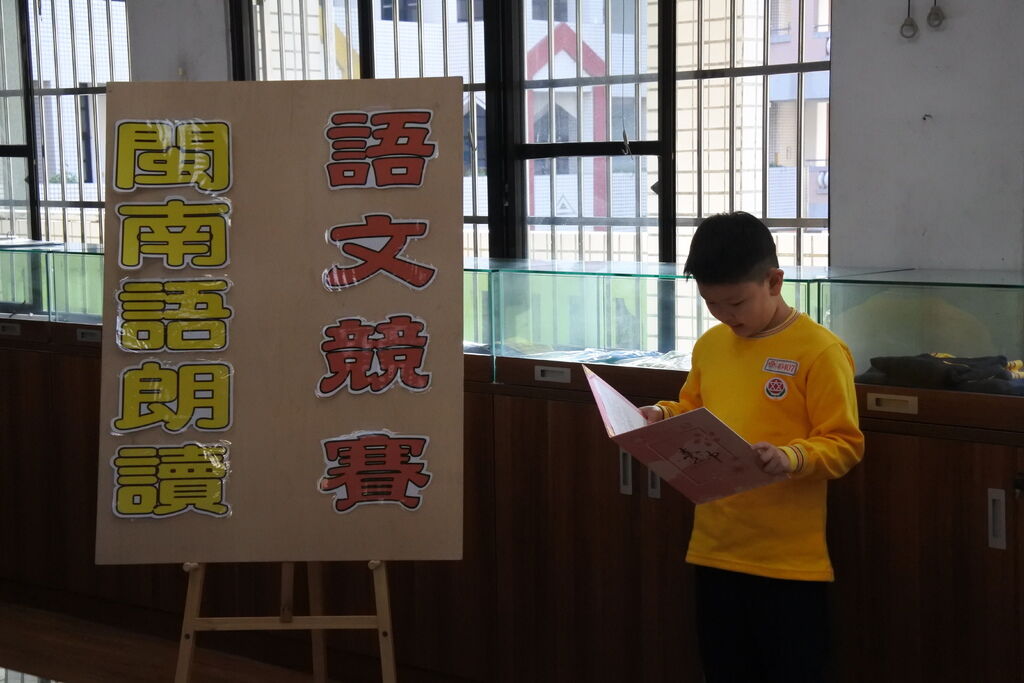 語文競賽
閩南語朗讀